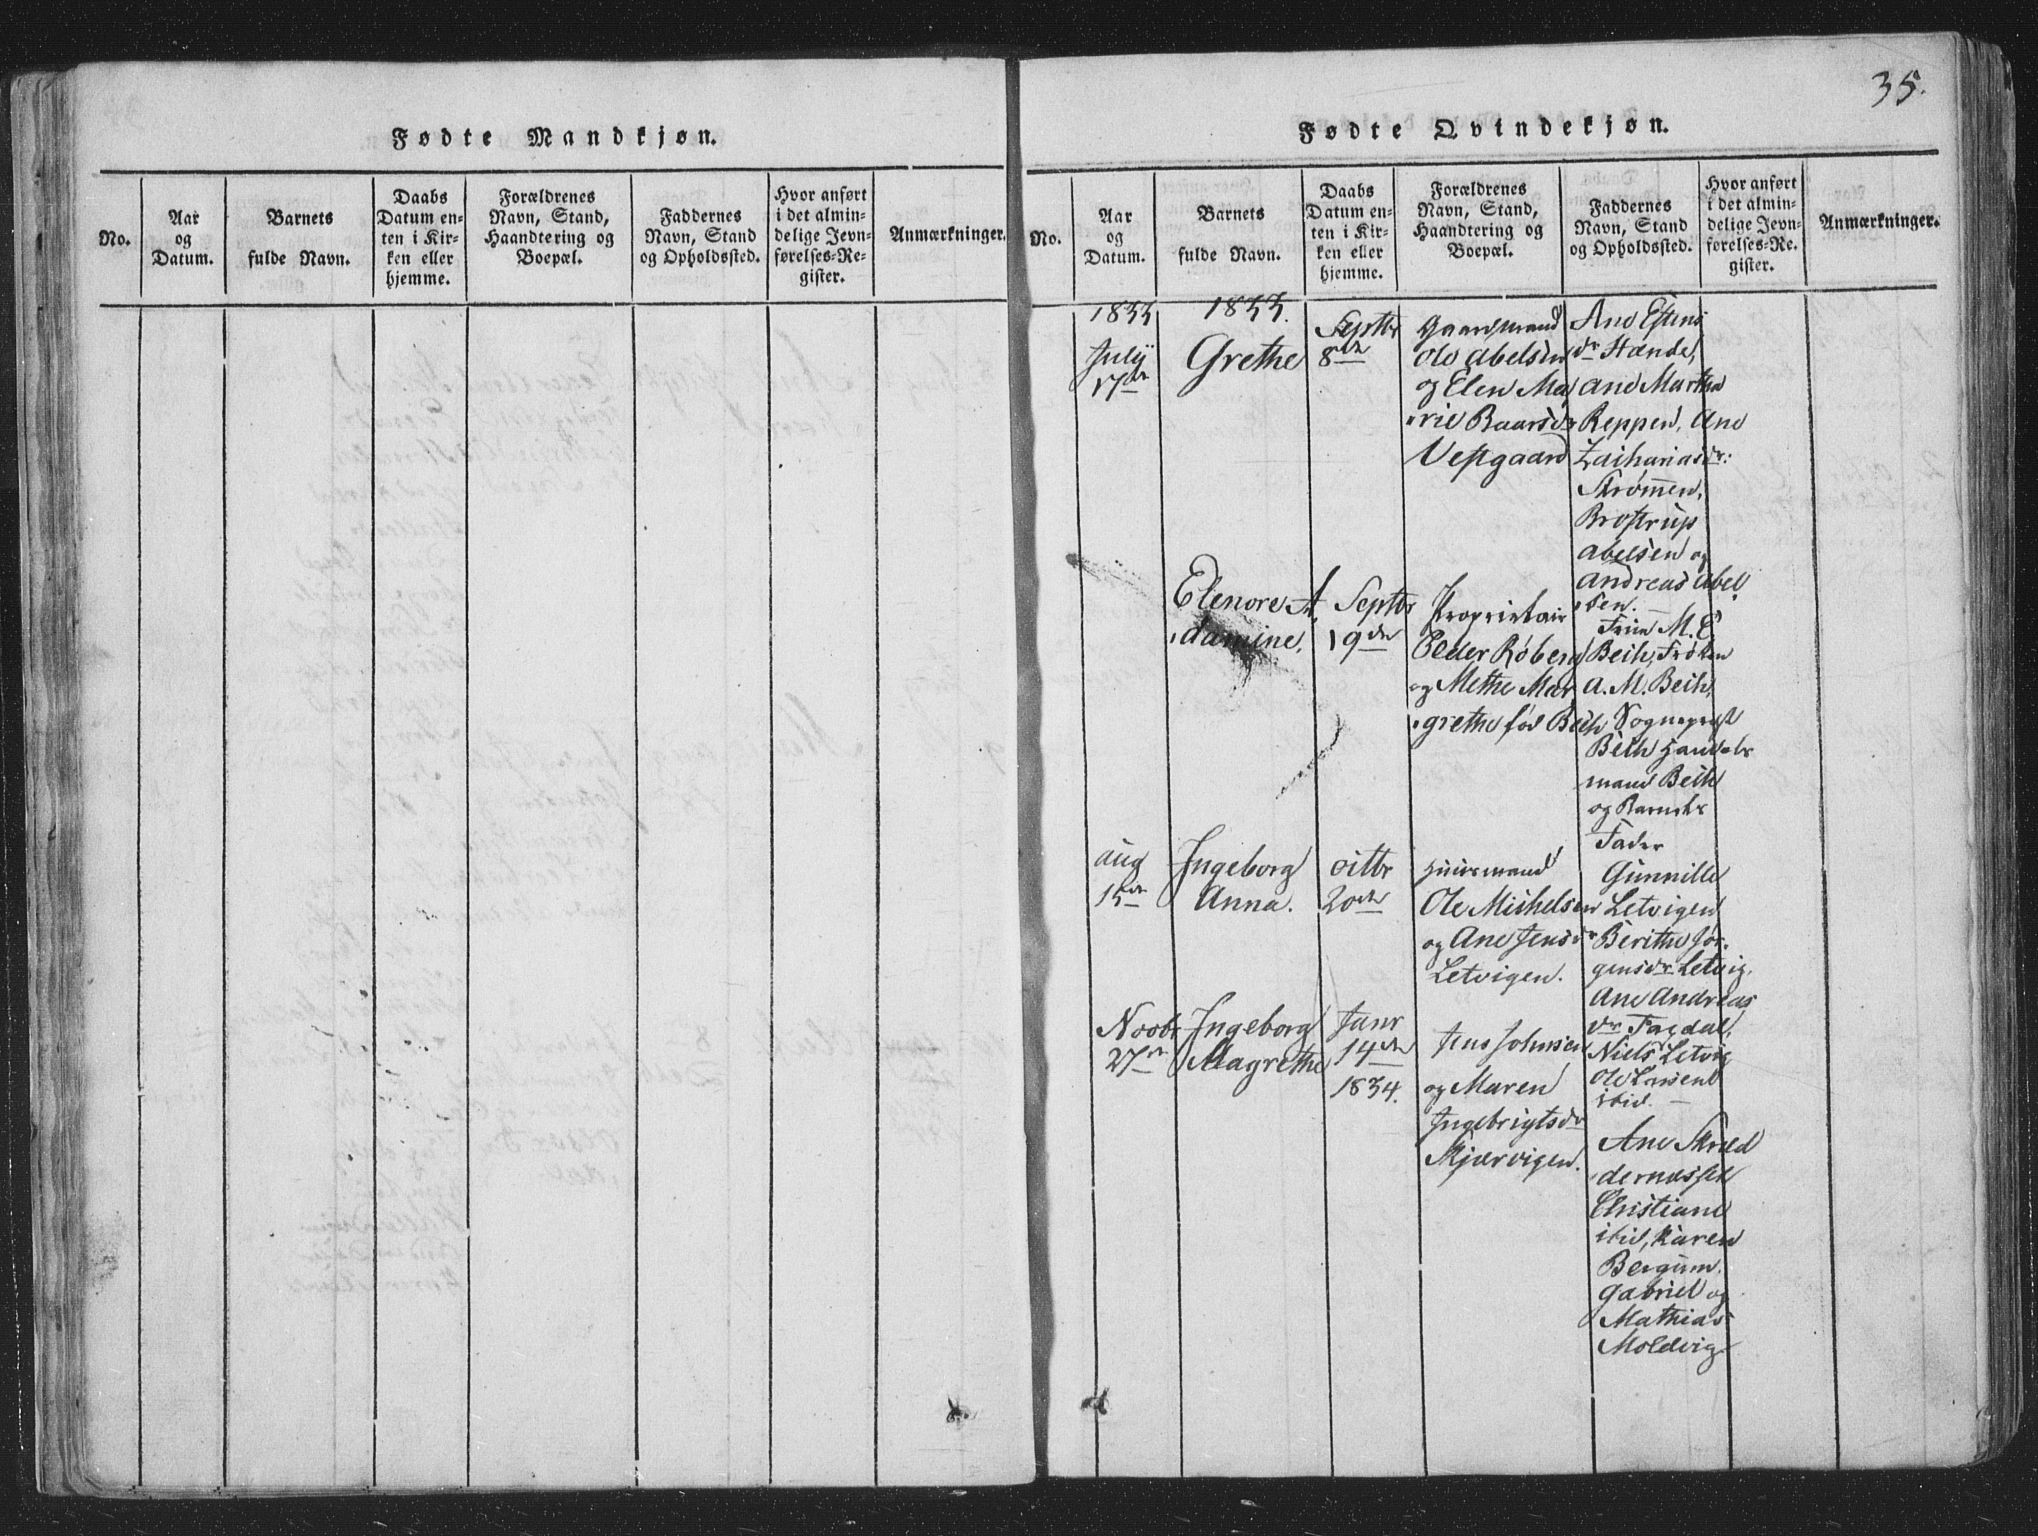 Fødte Mandkjøn.
No.
Aar
og
Datum.
Barnets
fulde Navn.
Daabs
Datum en-
ten i Kir-
ken eller
hjemme.
Forældrenes
Navn, Stand,
Haandtering og
Boepæl.
Faddernes
Navn, Stand
og Opholdssted.
Hvor anført
i det almin-
delige Jevn-
førelses-Re-
gister.
Anmærkninger.
35.
Fødte Qvindekjøn.
No.
Aar
og
Datum.
Barnets
fulde Navn.
Daabs
Datum en-
ten i Kir-
ken eller
hjemme.
Forældrenes
Navn, Stand,
Haandtering og
Boepæl.
Faddernes
Navn, Stand
og Opholdssted.
Hvor anført
i det almin-
delige Jevn-
førelses-Re-
gister.
Anmærkninger.
1833
July
17de
1833.
Grethe
Septbr
8de
Gaardmand
Ole Abelsen
og Elen Ma,
rie Baarsdr
Vestgaard
Ane Estens
dr Hande,
Ane Martha
Reppen, Ane
Zachariasdr:
Strømen,
Brostrup
Abelsen og
Andreas Abel
sen. —
Elenore A,
damine,
Septbr
19de
Proprietair
Elder Røberg
og Methe Mar
grethe fød Beck
Frue M. C
Beck, Frøken
A. M. Beck,
Sogneprest
Beck Handels
mand Beck
og Barnets
Fader
Aug
15de
Ingeborg
Anna.
Octbr
20de
Huusmand
Ole Michelsen
og Ane Jensdr
Letvigen.
Gunnille
Letvigen
Berithe Jør-
gensdr Letvig,
Ane Andreas
dr Fagdal,
Niels Letvig
Ole Larsen
ibid. —
Novbr
27de
Ingeborg
Magrethe
Janr
14de
1834.
Jens Johnsen
og Maren
Ingebrigtsdr
Kjærvigen.
Ane Skræd
dernæsset
Christiane
ibid, Karen
Bergum.
Gabriel og
Mathias
Moldvig